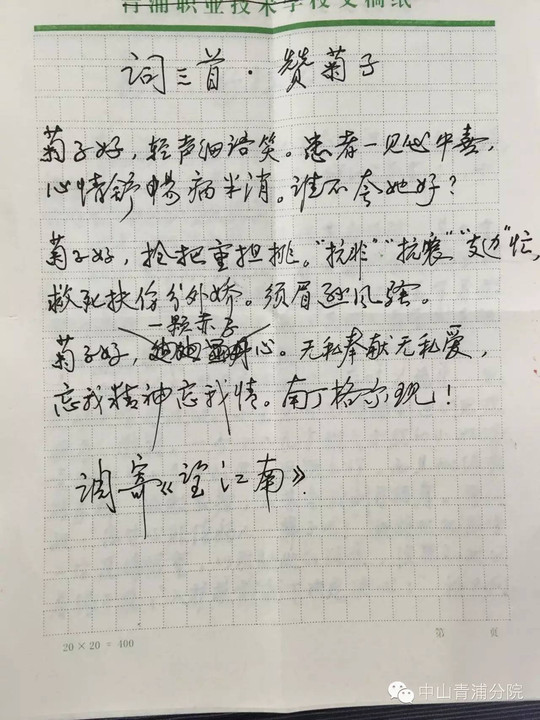 青浦职业技术学校文稿纸
词三首·赞菊子
菊子好，轻声细语笑。患者一见心中喜，
心情舒畅病半消。谁不夸她好？
菊子好，抢把重担挑。“抗非”“抗震”“支边”忙，
救死扶伤分外娇。须眉逊风骚。
一颗赤子
菊子好，心。无私奉献无私爱，
忘我精神忘我情。南丁格尔现！
调寄《望江南》
20 × 20 = 400
第 页
中山青浦分院